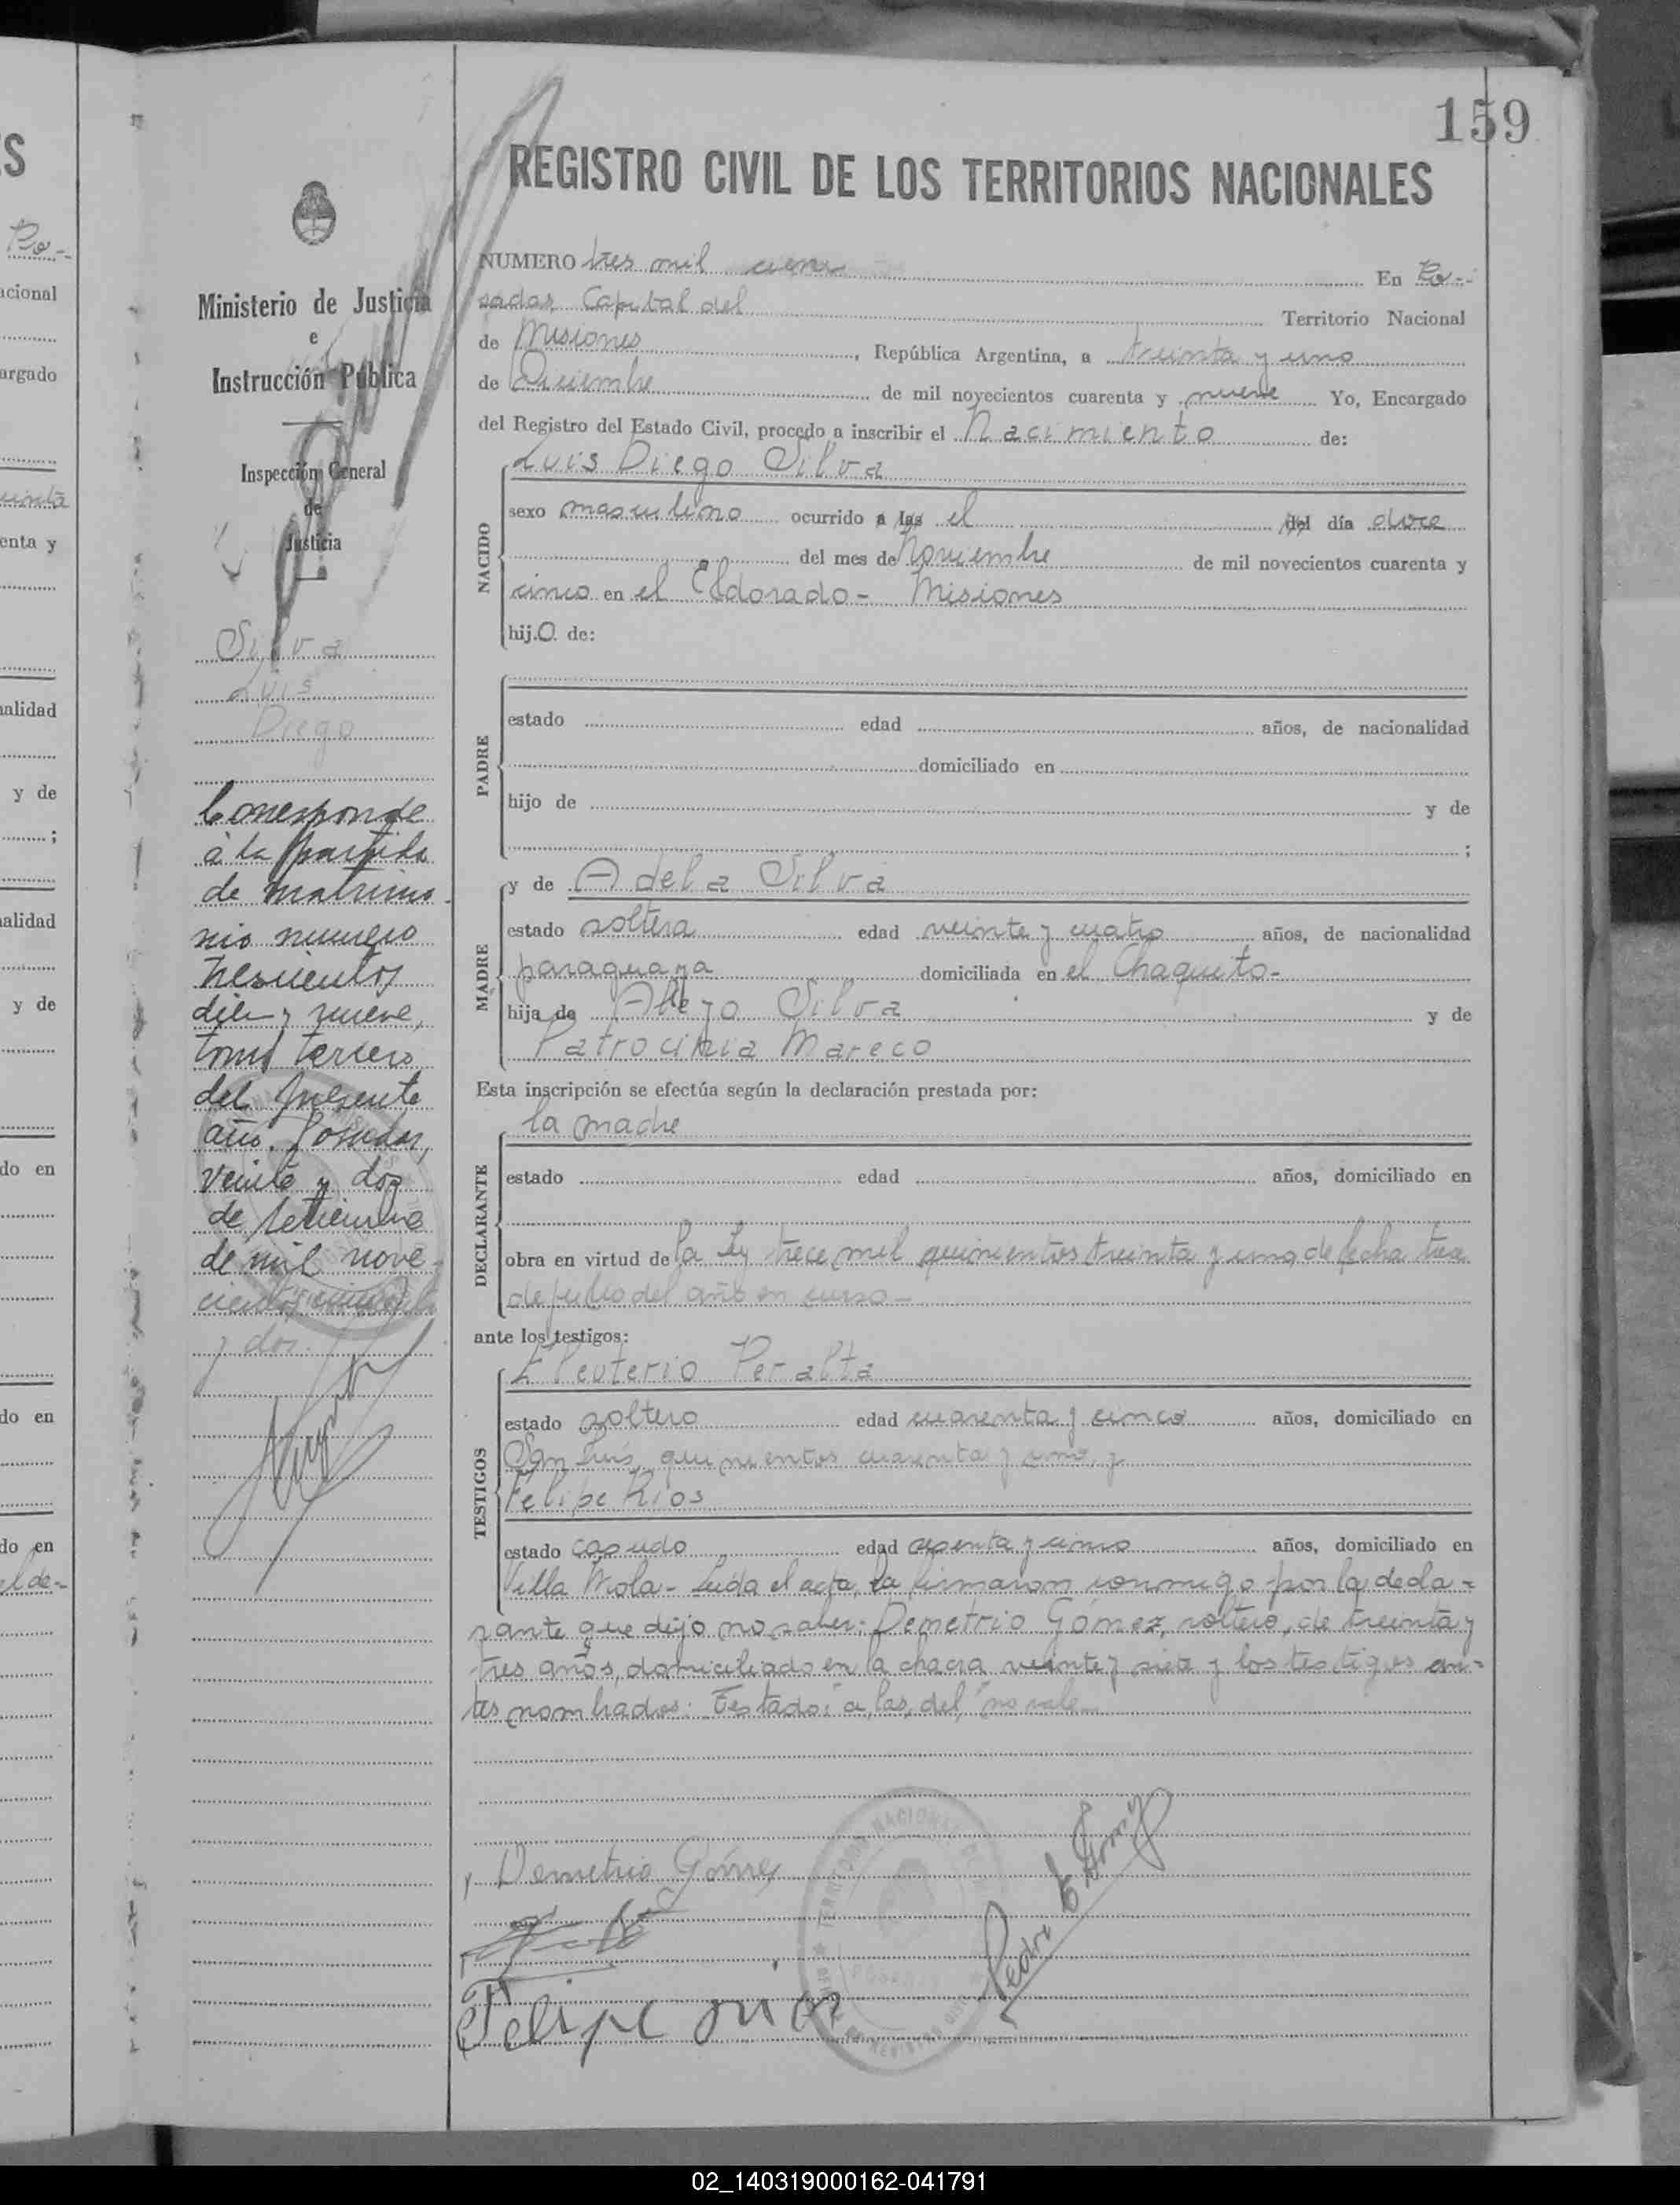 159
REGISTRO CIVIL DE LOS TERRITORIOS NACIONALES
Ministerio de Justicia
e
Instrucción Pública
Inspección General
de
Justicia
Silva
Luis
Diego
Corresponde
a la partida
de matrimo-
nio número
trescientos
diez y nueve,
tomo tercero
del presente
año. Posadas,
veinte y dos
de setiembre
de mil nove-
cientos cincuenta
y dos.
NUMERO tres mil cien En Po-
sadas, Capital del Territorio Nacional
de Misiones, República Argentina, a treinta y uno
de Diciembre de mil novecientos cuarenta y nueve Yo, Encargado
del Registro del Estado Civil, procedo a inscribir el Nacimiento de:
NACIDO
Luis Diego Silva
sexo masculino ocurrido a las el del día doce
del mes de Noviembre de mil novecientos cuarenta y
cinco en el Eldorado - Misiones
hij.o de:
PADRE
estado edad años, de nacionalidad
domiciliado en
hijo de y de
;
MADRE
y de Adela Silva
estado soltera edad veinte y cuatro años, de nacionalidad
paraguaya domiciliada en el Chaquito-
hija de Silva y de
Patrocinia Mareco
Esta inscripción se efectúa según la declaración prestada por:
DECLARANTE
la madre
estado edad años, domiciliado en
obra en virtud de la Ley trece mil quinientos treinta y uno, de fecha
de julio del año en curso-
ante los testigos:
TESTIGOS
Eleuterio Peralta
estado soltero edad cuarenta y cinco años, domiciliado en
San Luis, quinientos cuarenta y uno, y
Felipe Rios
estado casado edad y cinco años, domiciliado en
Villa - Leída el acta, la firmaron conmigo por la decla-
rante que dijo no saber: Demetrio Gómez, soltero, de treinta y
tres años, domiciliado en la chacra veinte y siete y los testigos an-
tes nombrados. Testado: "a, las, del" no vale-
Demetrio Gómez
Felipe rios
02_140319000162-041791